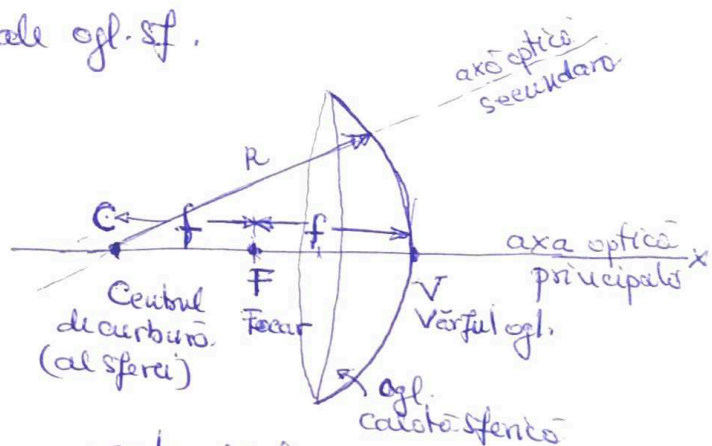 ale ogl. sf.
axă optică
secundară
R
C f f
axa optică x
principală
F
V
Centrul
de curbură
(al sferei)
Focar
Vârful ogl.
ogl.
calotă sferică